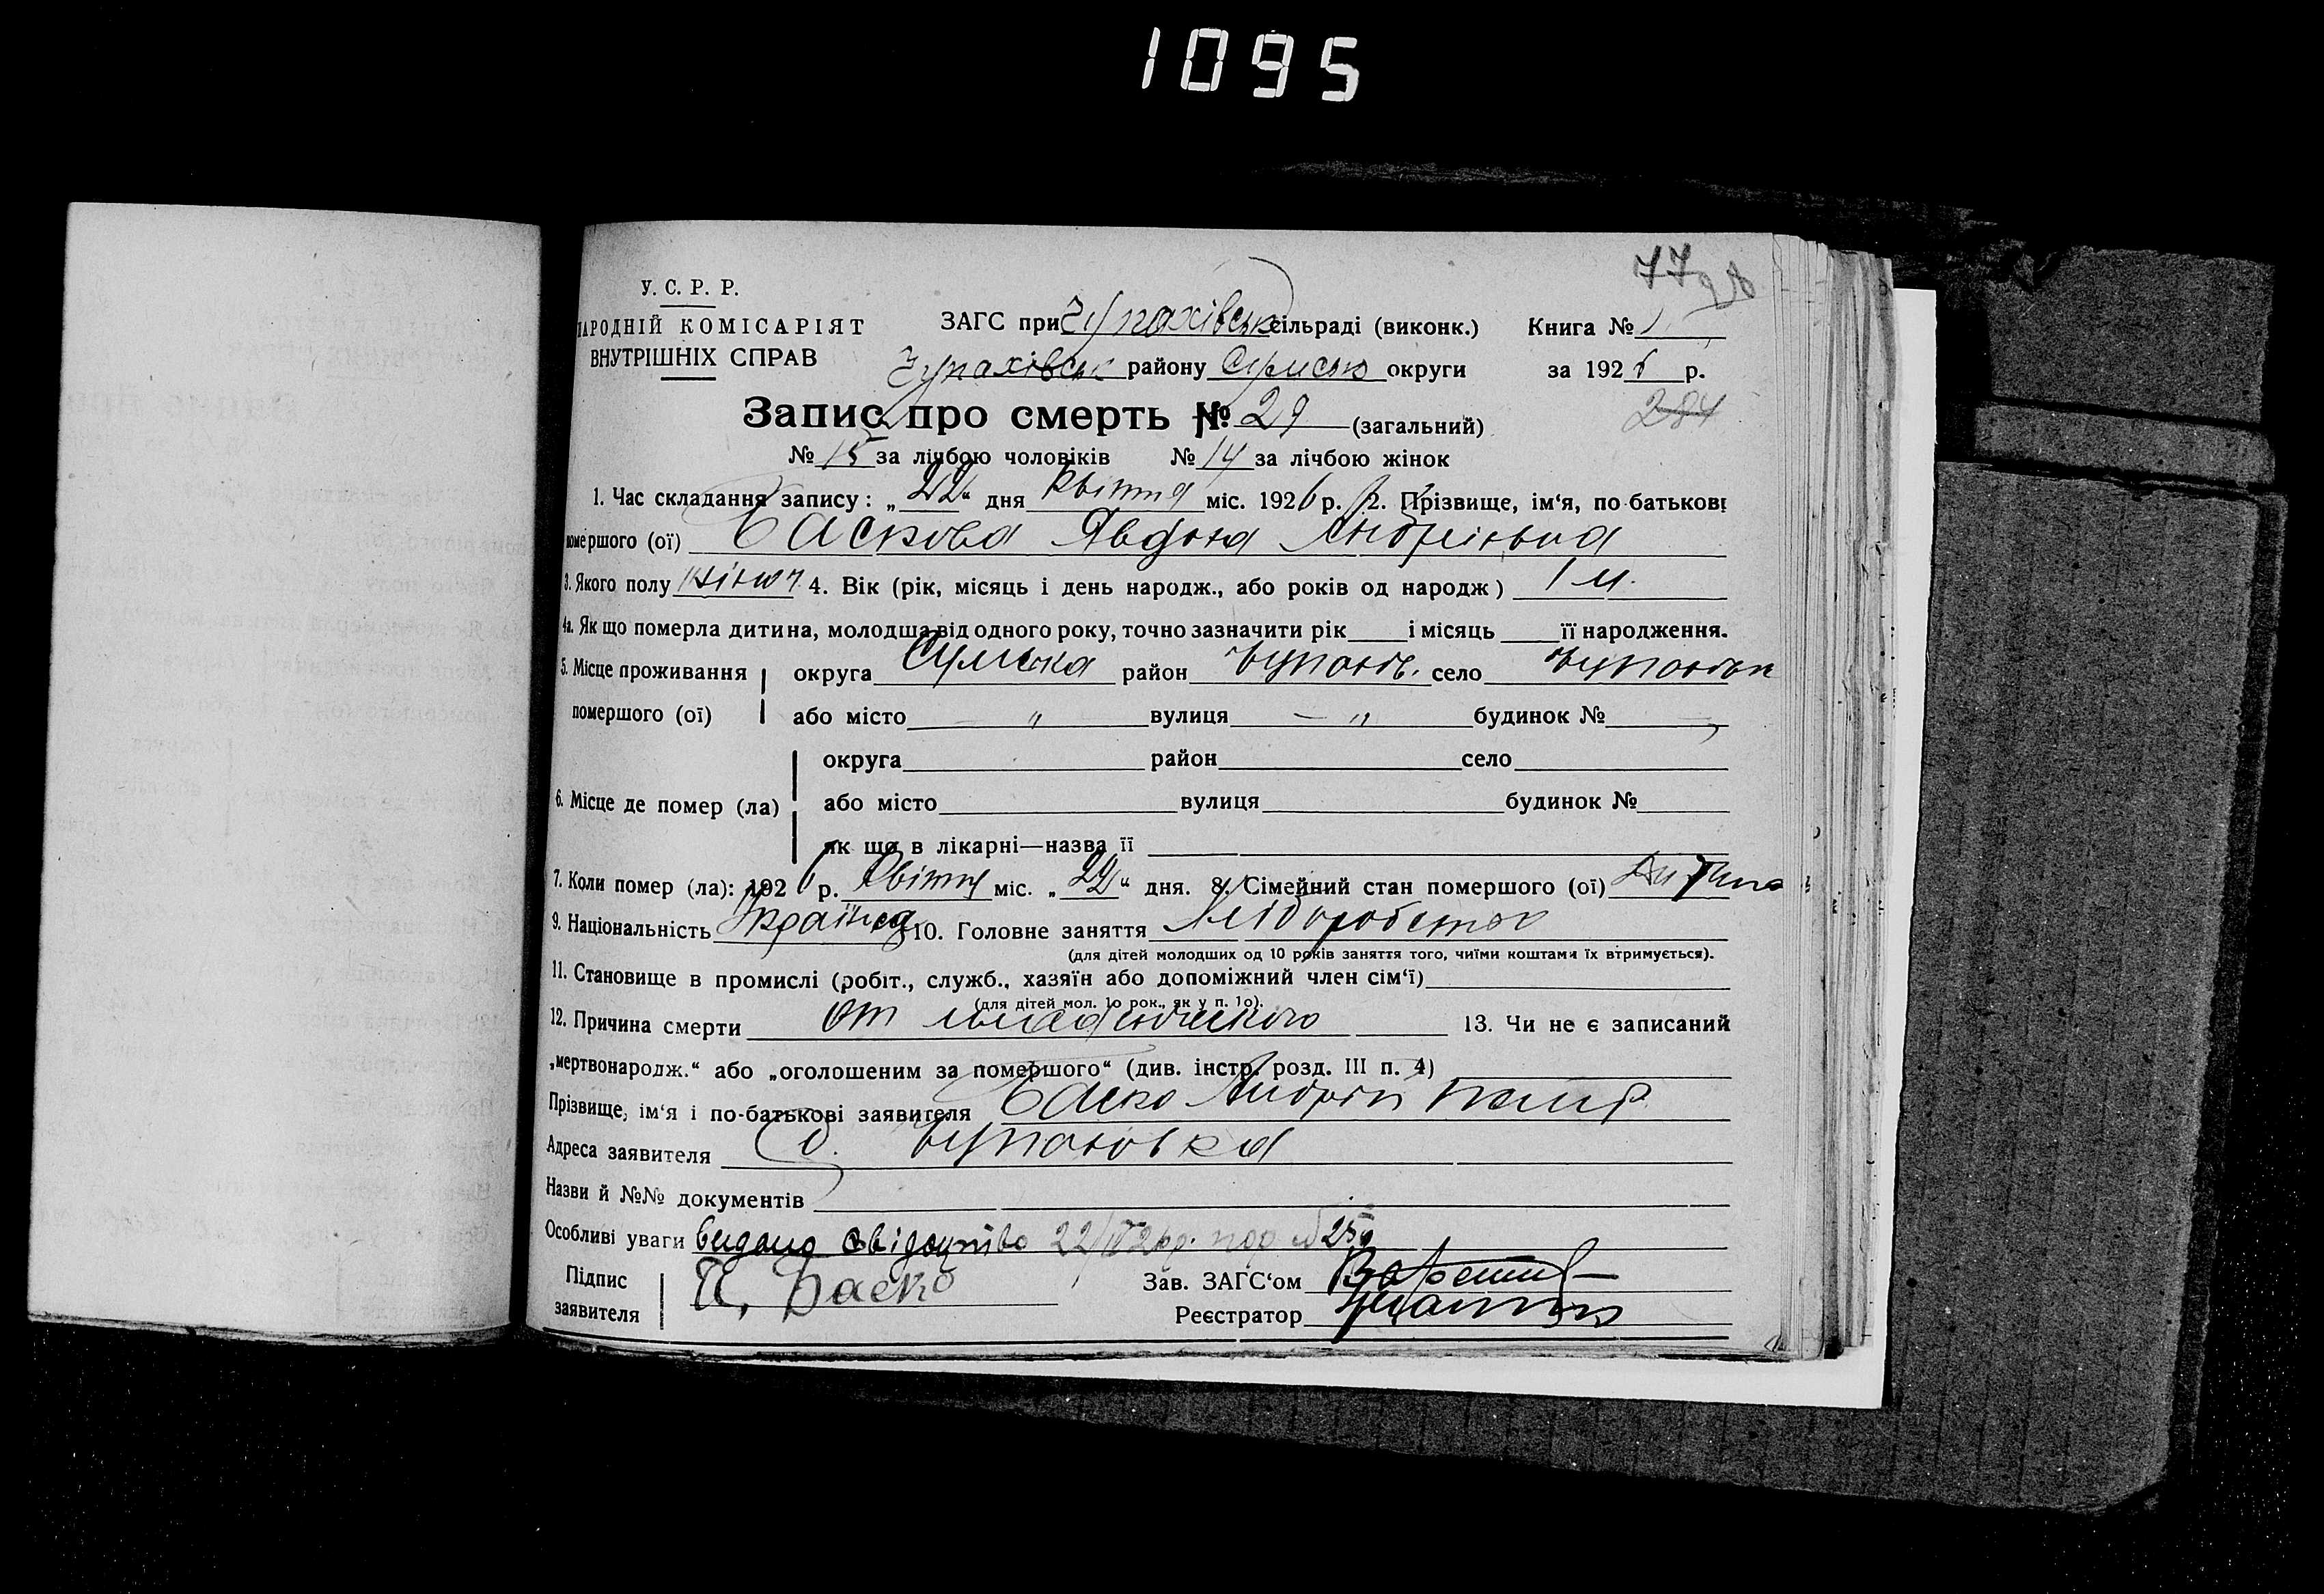 1095
77
У. С. Р. Р.
НАРОДНІЙ КОМІСАРІЯТ
ВНУТРІШНІХ СПРАВ
ЗАГС при Чупахівськ сільраді (виконк.) Книга № 1
Чупахівськ району Сумськ округи за 1926 р.
Запис про смерть № 29 (загальний)
284
№ 15 за лічбою чоловіків № 14 за лічбою жінок
1. Час складання запису: „22“ дня Квітня міс. 1926 р. 2. Прізвище, ім‘я, по-батькові
помершого (ої) Баскова Явдоха Андріївна
3. Якого полу жіноч. 4. Вік (рік, місяць і день народж., або років од народж) 1 м.
4а. Як що померла дитина, молодша від одного року, точно зазначити рік і місяць її народження.
5. Місце проживання округа Сумська район Чупахів. село
помершого (ої) або місто — „ вулиця — „ будинок №
округа район село
6. Місце де помер (ла) або місто вулиця будинок №
як що в лікарні—назва її
7. Коли помер (ла): 1926 р. Квітня міс. „22“ дня. 8. Сімейний стан помершого (ої) Дитина
9. Національність 10. Головне заняття Хліборобство
(для дітей молодших од 10 років заняття того, чиїми коштами їх втримується).
11. Становище в промислі (робіт., служб., хазяїн або допоміжний член сім‘ї)
(для дітей мол. 1о рок., як у п. 1о).
12. Причина смерти от младенческого 13. Чи не є записаний
„мертвонародж.“ або „оголошеним за помершого“ (див. інстр. розд. III п. 4)
Прізвище, ім‘я і по-батькові заявителя Баско Андрій
Адреса заявителя с. Чупаховка
Назви й №№ документів
Особливі уваги видано свідоцтво 22/IV 26р. под №
Підпис
заявителя Баско
Зав. ЗАГС‘ом
Реєстратор